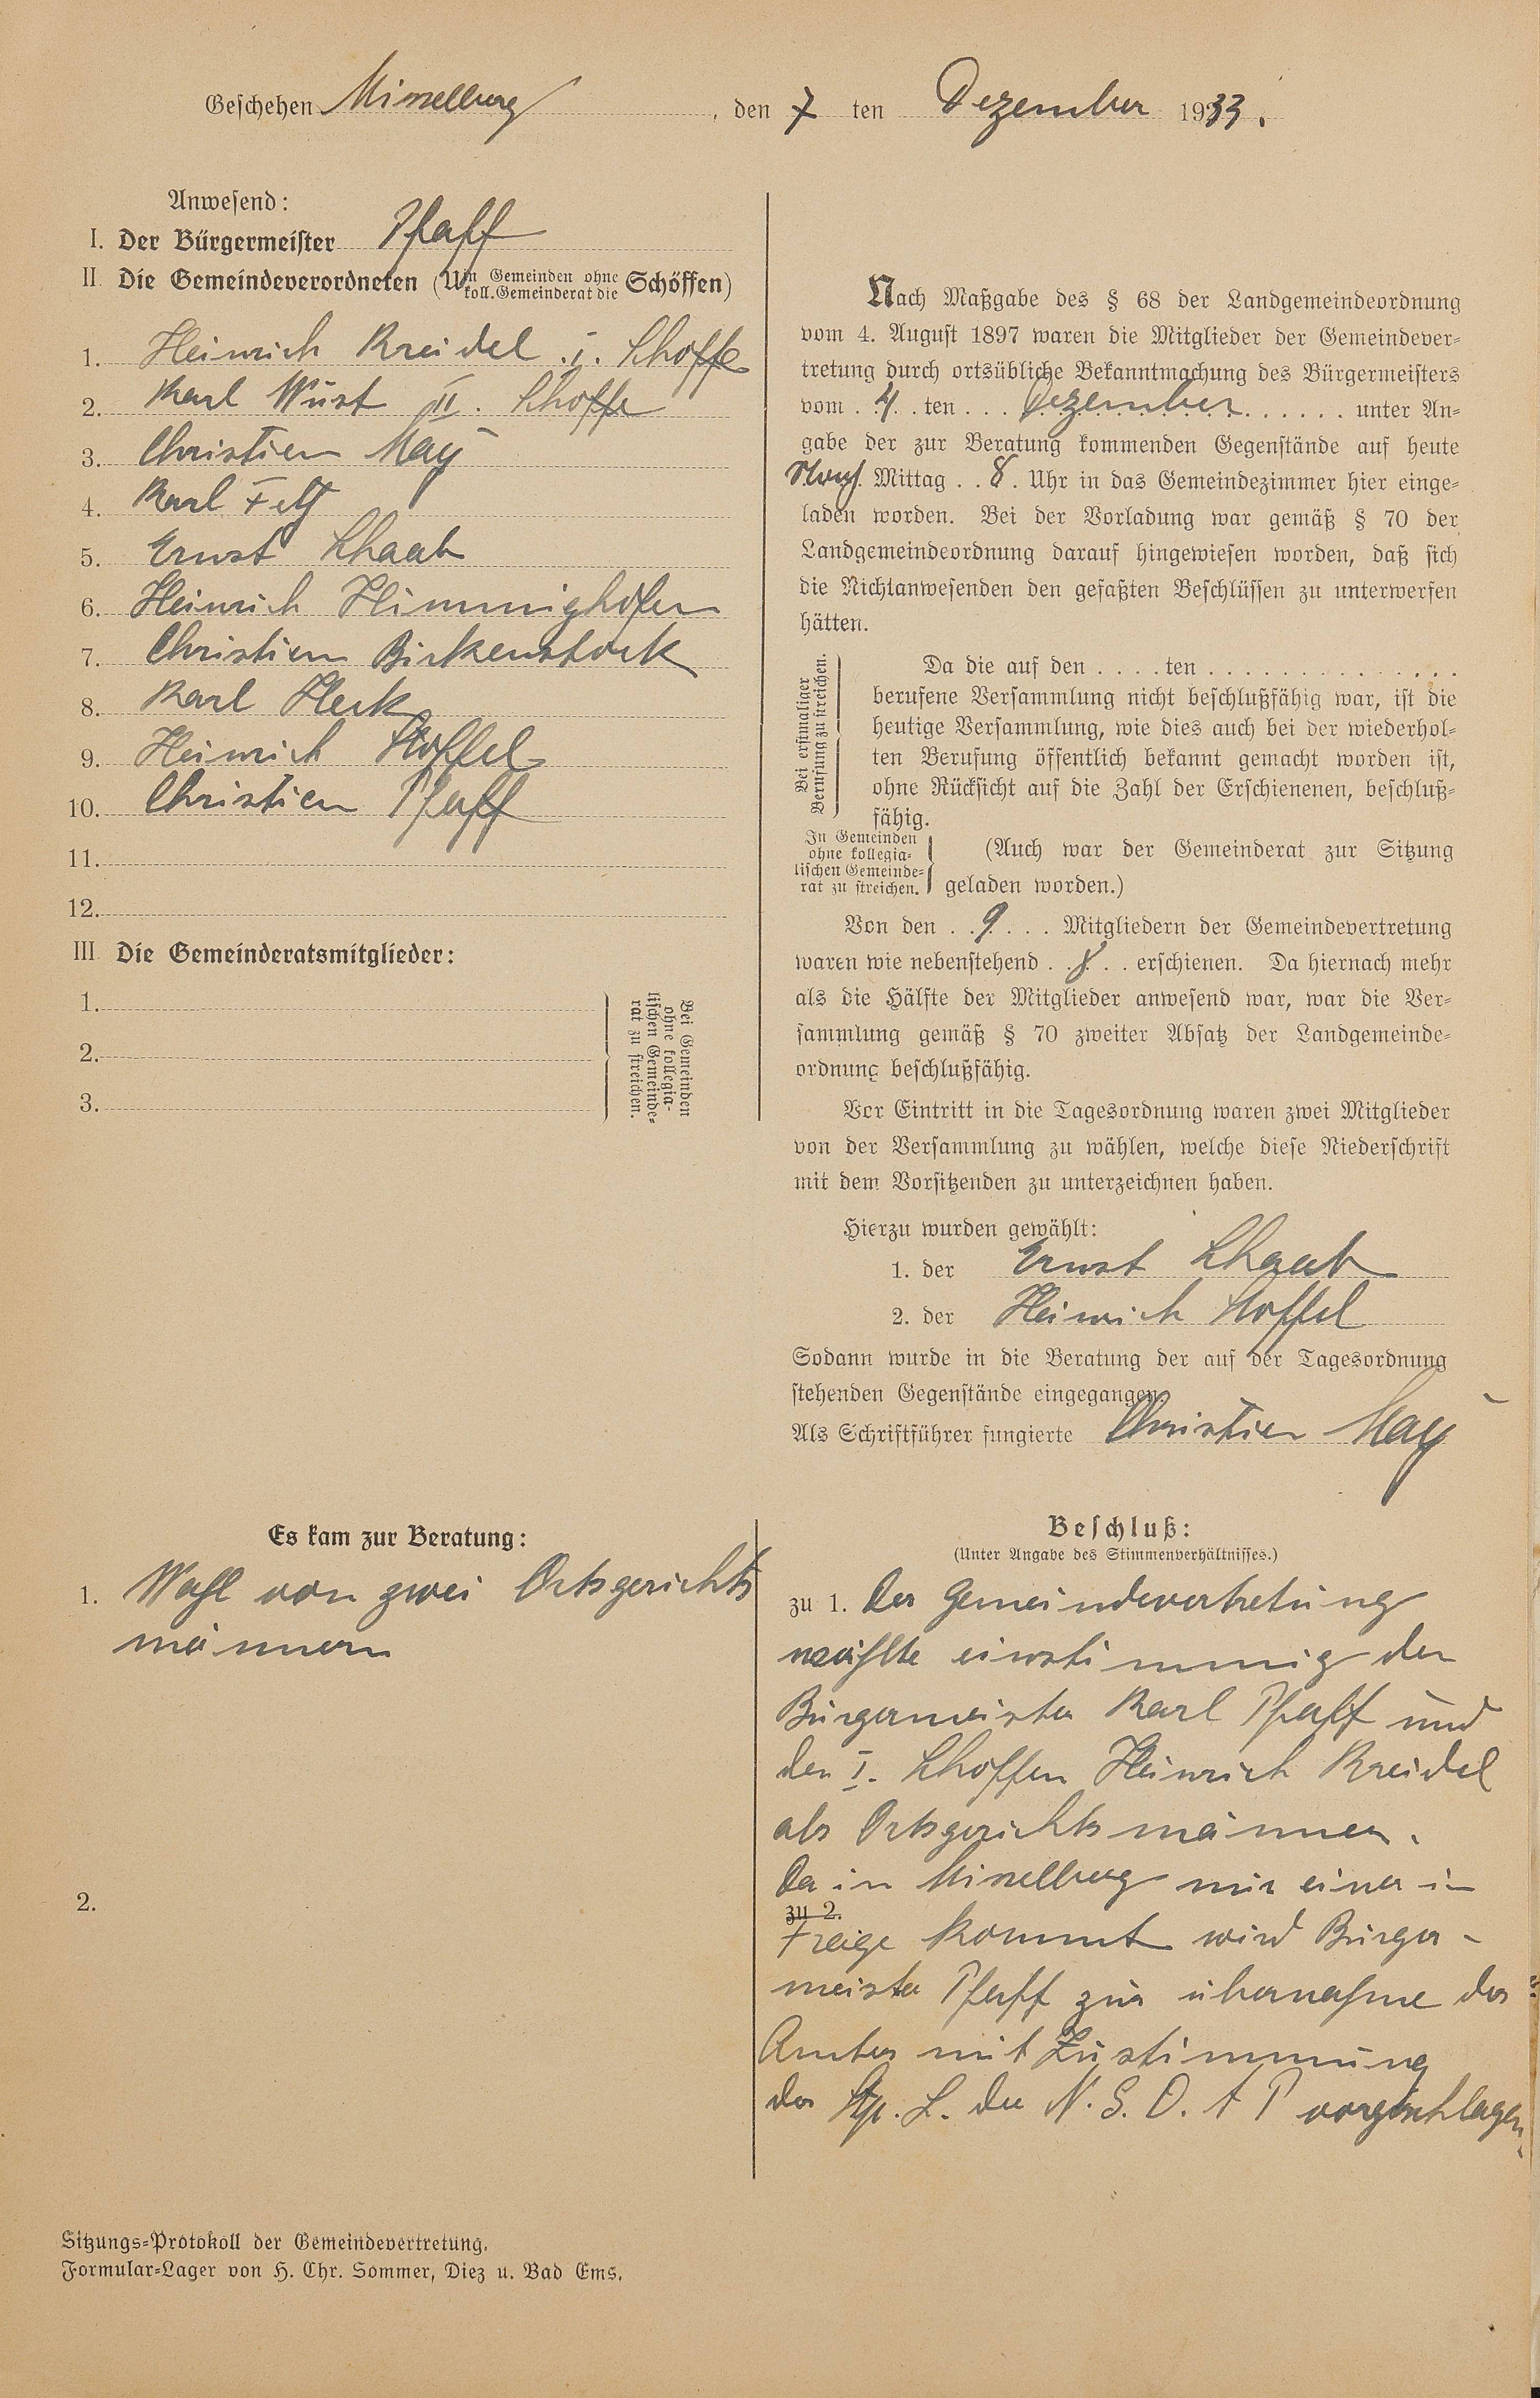 Geschehen Misselberg, den 7 ten Dezember 1933.
Anwesend:
I. Der Bürgermeister Pfaff
II. Die Gemeindeverordneten (U. in Gemeinden ohne koll. Gemeinderat die Schöffen)
1. Heinrich Kreidel I. Schöffe
2. Karl Wüst II. Schöffe
3. Christian May
4. Karl
5. Ernst Schaab
6. Heinrich Himmighofen
7. Christian Birkenstock
8. Karl Heck
9. Heinrich Stoffel
10. Christian Pfaff
11.
12.
III. Die Gemeinderatsmitglieder:
1.
2.
3.
Bei Gemeinden
ohne kollegia-
lischen Gemeinde-
rat zu streichen.
Nach Maßgabe des § 68 der Landgemeindeordnung
vom 4. August 1897 waren die Mitglieder der Gemeindever-
tretung durch ortsübliche Bekanntmachung des Bürgermeisters
vom 4. ten Dezember unter An-
gabe der zur Beratung kommenden Gegenstände auf heute
Nach. Mittag 8. Uhr in das Gemeindezimmer hier einge-
laden worden. Bei der Vorladung war gemäß § 70 der
Landgemeindeordnung darauf hingewiesen worden, daß sich
die Nichtanwesenden den gefaßten Beschlüssen zu unterwerfen
hätten.
Bei erstmaliger
Berufung zu streichen.
Da die auf den ....ten ..............
berufene Versammlung nicht beschlußfähig war, ist die
heutige Versammlung, wie dies auch bei der wiederhol-
ten Berufung öffentlich bekannt gemacht worden ist,
ohne Rücksicht auf die Zahl der Erschienenen, beschluß-
fähig.
In Gemeinden
ohne kollegia-
lischen Gemeinde-
rat zu streichen.
(Auch war der Gemeinderat zur Sitzung
geladen worden.)
Von den 9 Mitgliedern der Gemeindevertretung
waren wie nebenstehend 8 erschienen. Da hiernach mehr
als die Hälfte der Mitglieder anwesend war, war die Ver-
sammlung gemäß § 70 zweiter Absatz der Landgemeinde-
ordnung beschlußfähig.
Vor Eintritt in die Tagesordnung waren zwei Mitglieder
von der Versammlung zu wählen, welche diese Niederschrift
mit dem Vorsitzenden zu unterzeichnen haben.
Hierzu wurden gewählt:
1. der Ernst Schaab
2. der Heinrich Stoffel
Sodann wurde in die Beratung der auf der Tagesordnung
stehenden Gegenstände eingegangen.
Als Schriftführer fungierte Christian May
Es kam zur Beratung:
1. Wahl von zwei Ortsgerichts
männern
2.
Beschluß:
(Unter Angabe des Stimmenverhältnisses.)
zu 1. Der Gemeindevertretung
wählte einstimmig den
Bürgermeister Karl Pfaff und
den I. Schöffen Heinrich Kreidel
als Ortsgerichtsmänner.
Da in Misselberg nur einer in
zu 2.
Frage kommt wird Bürger-
meister Pfaff zur übernahme des
Amtes mit Zustimmung
des Stp. L. der N. S. D. A P vorgeschlagen.
Sitzungs-Protokoll der Gemeindevertretung.
Formular-Lager von H. Chr. Sommer, Diez u. Bad Ems.